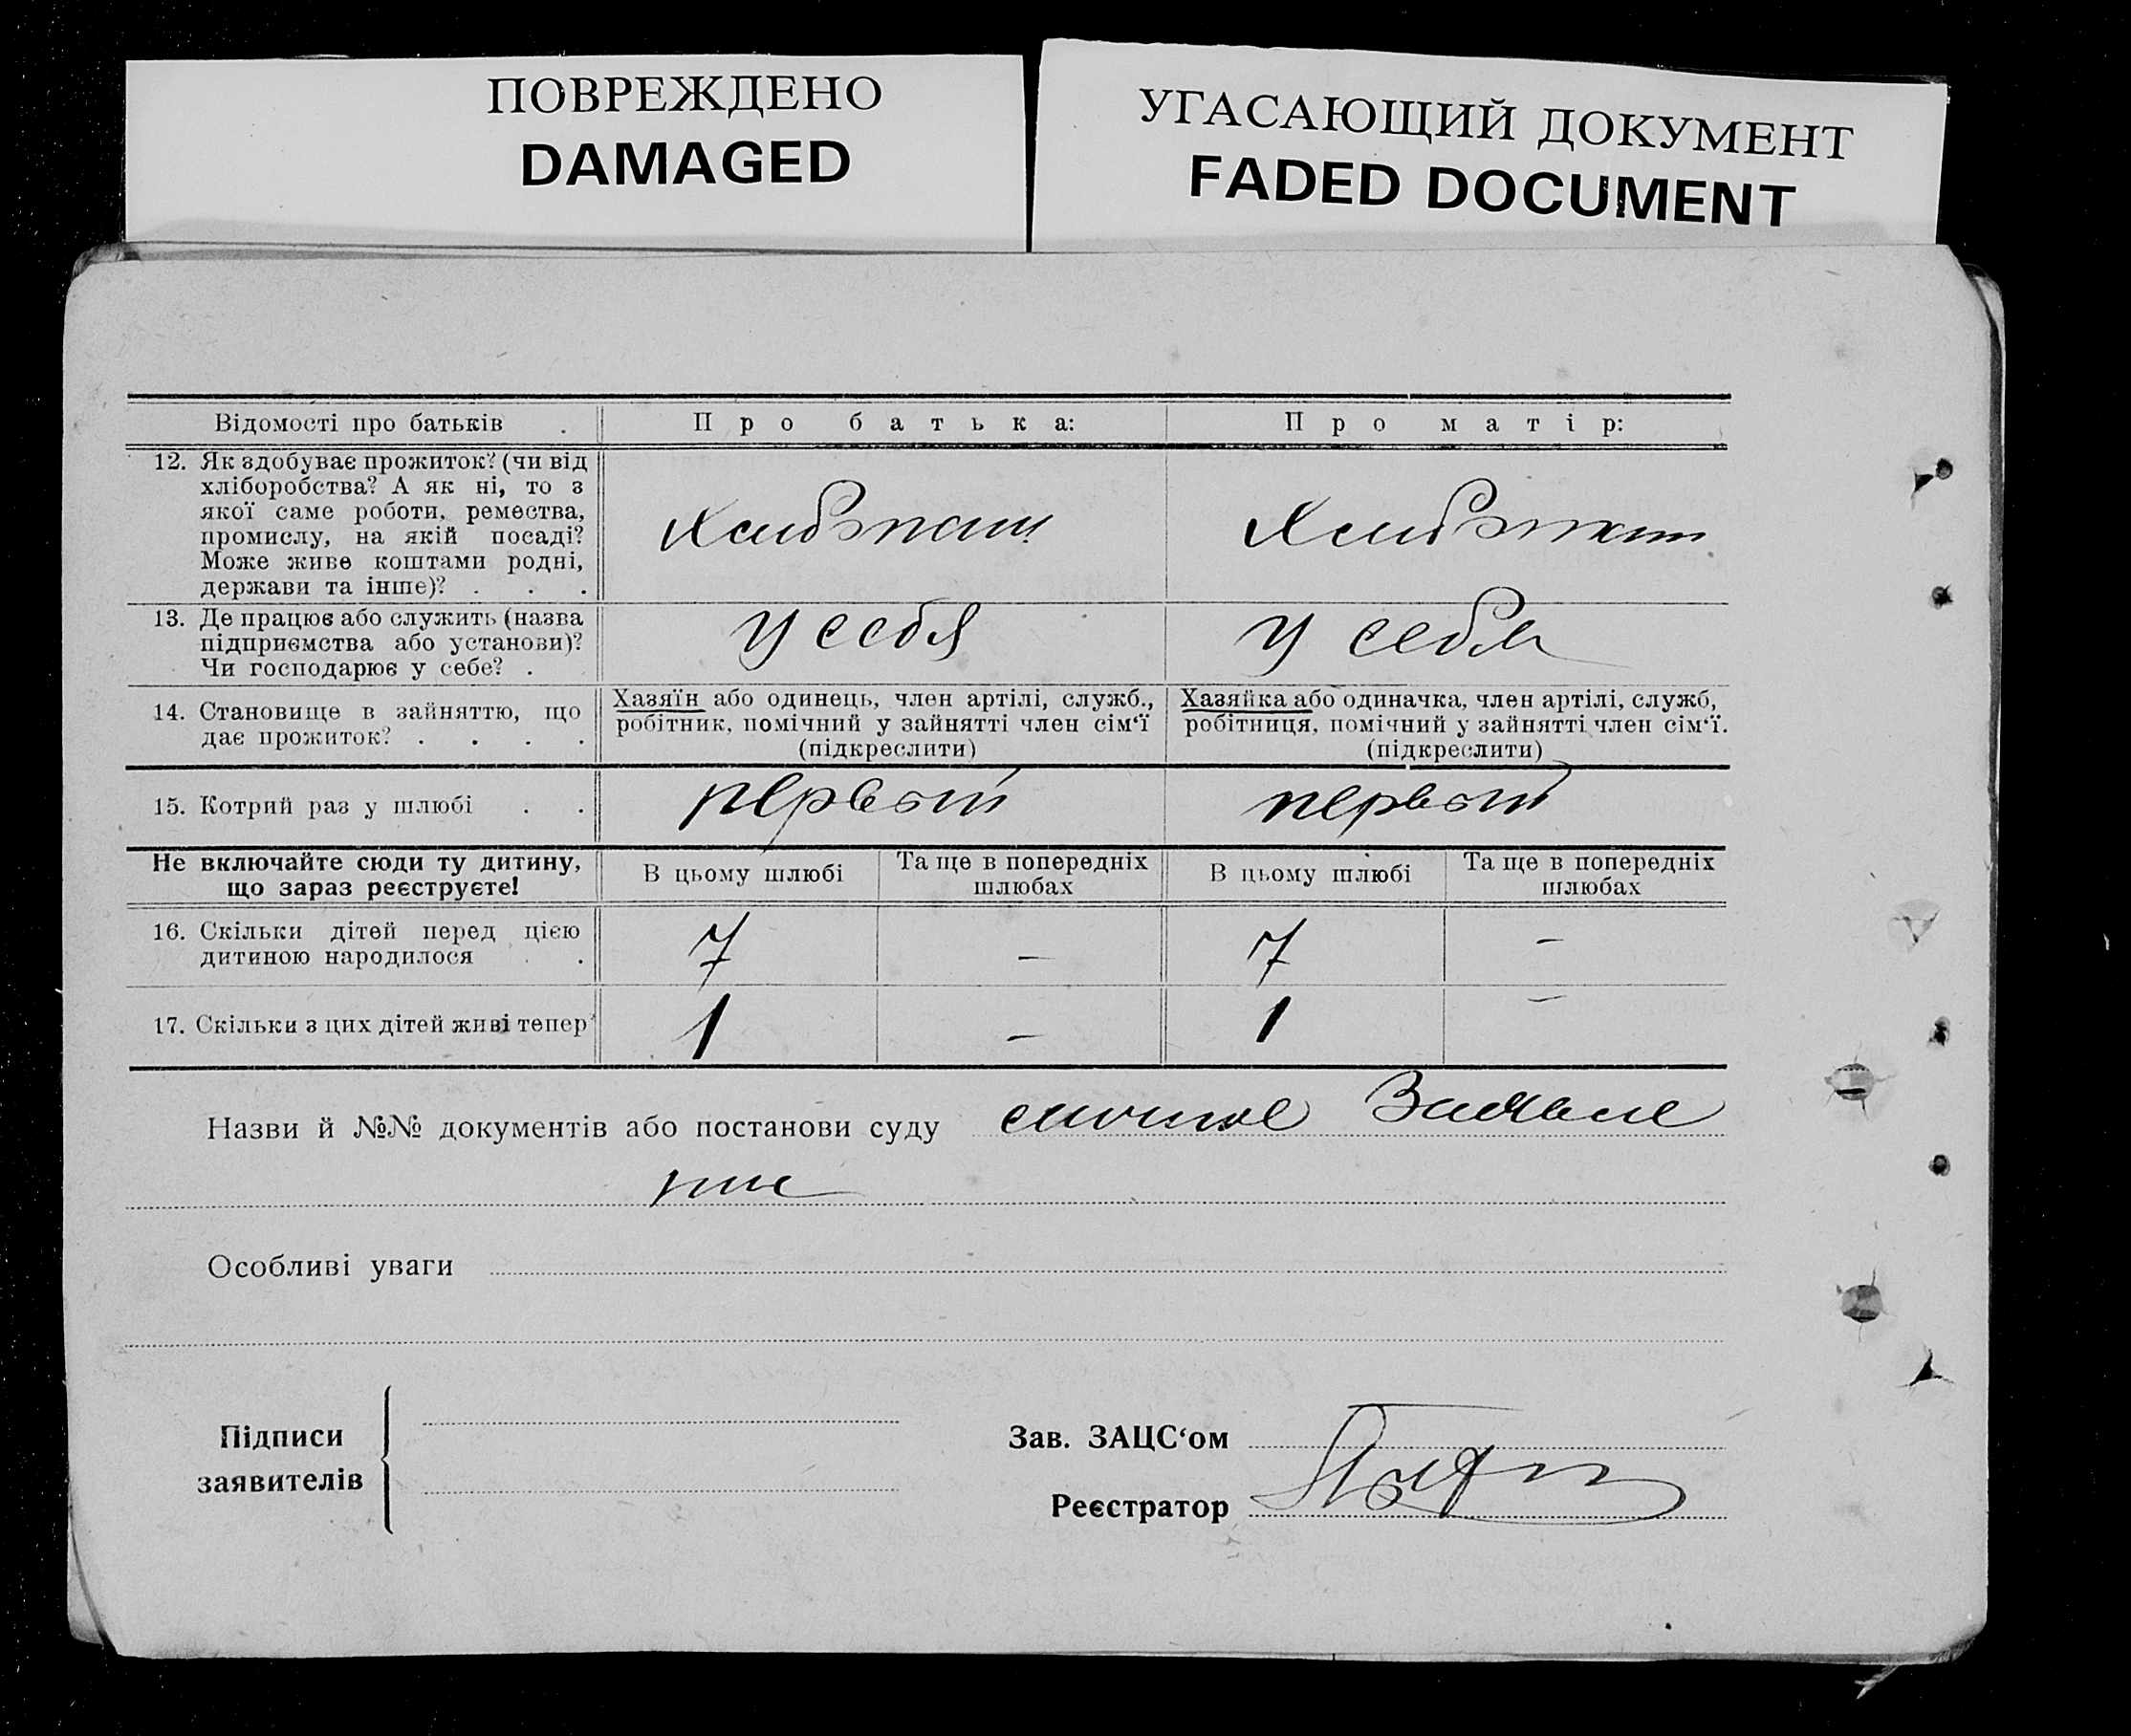 ПОВРЕЖДЕНО
DAMAGED
УГАСАЮЩИЙ ДОКУМЕНТ
FADED DOCUMENT
Відомості про батьків . Про батька: Про матір:
12. Як здобуває прожиток? (чи від
хліборобства? А як ні, то з
якої саме роботи, ремества,
промислу, на якій посаді?
Може живе коштами родні,
держави та інше)? . . .
13. Де працює або служить (назва
підприємства або установи)?
Чи господарює у себе? .
у себя у себя
14. Становище в зайняттю, що
дає прожиток? . . . .
Хазяїн або одинець, член артілі, служб.,
робітник, помічний у зайнятті член сім‘ї
(підкреслити)
Хазяйка або одиначка, член артілі, служб,
робітниця, помічний у зайнятті член сім‘ї.
(підкреслити)
15. Котрий раз у шлюбі . . первый первый
Не включайте сюди ту дитину,
що зараз реєструєте!
В цьому шлюбі
Та ще в попередніх
шлюбах
В цьому шлюбі
Та ще в попередніх
шлюбах
16. Скільки дітей перед цією
дитиною народилося . .
7 — 7 —
17. Скільки з цих дітей живі тепер? 1 — 1 —
Назви й №№ документів або постанови суду личное Заявле
ние
Особливі уваги
Підписи
заявителів
Зав. ЗАЦС‘ом
Реєстратор